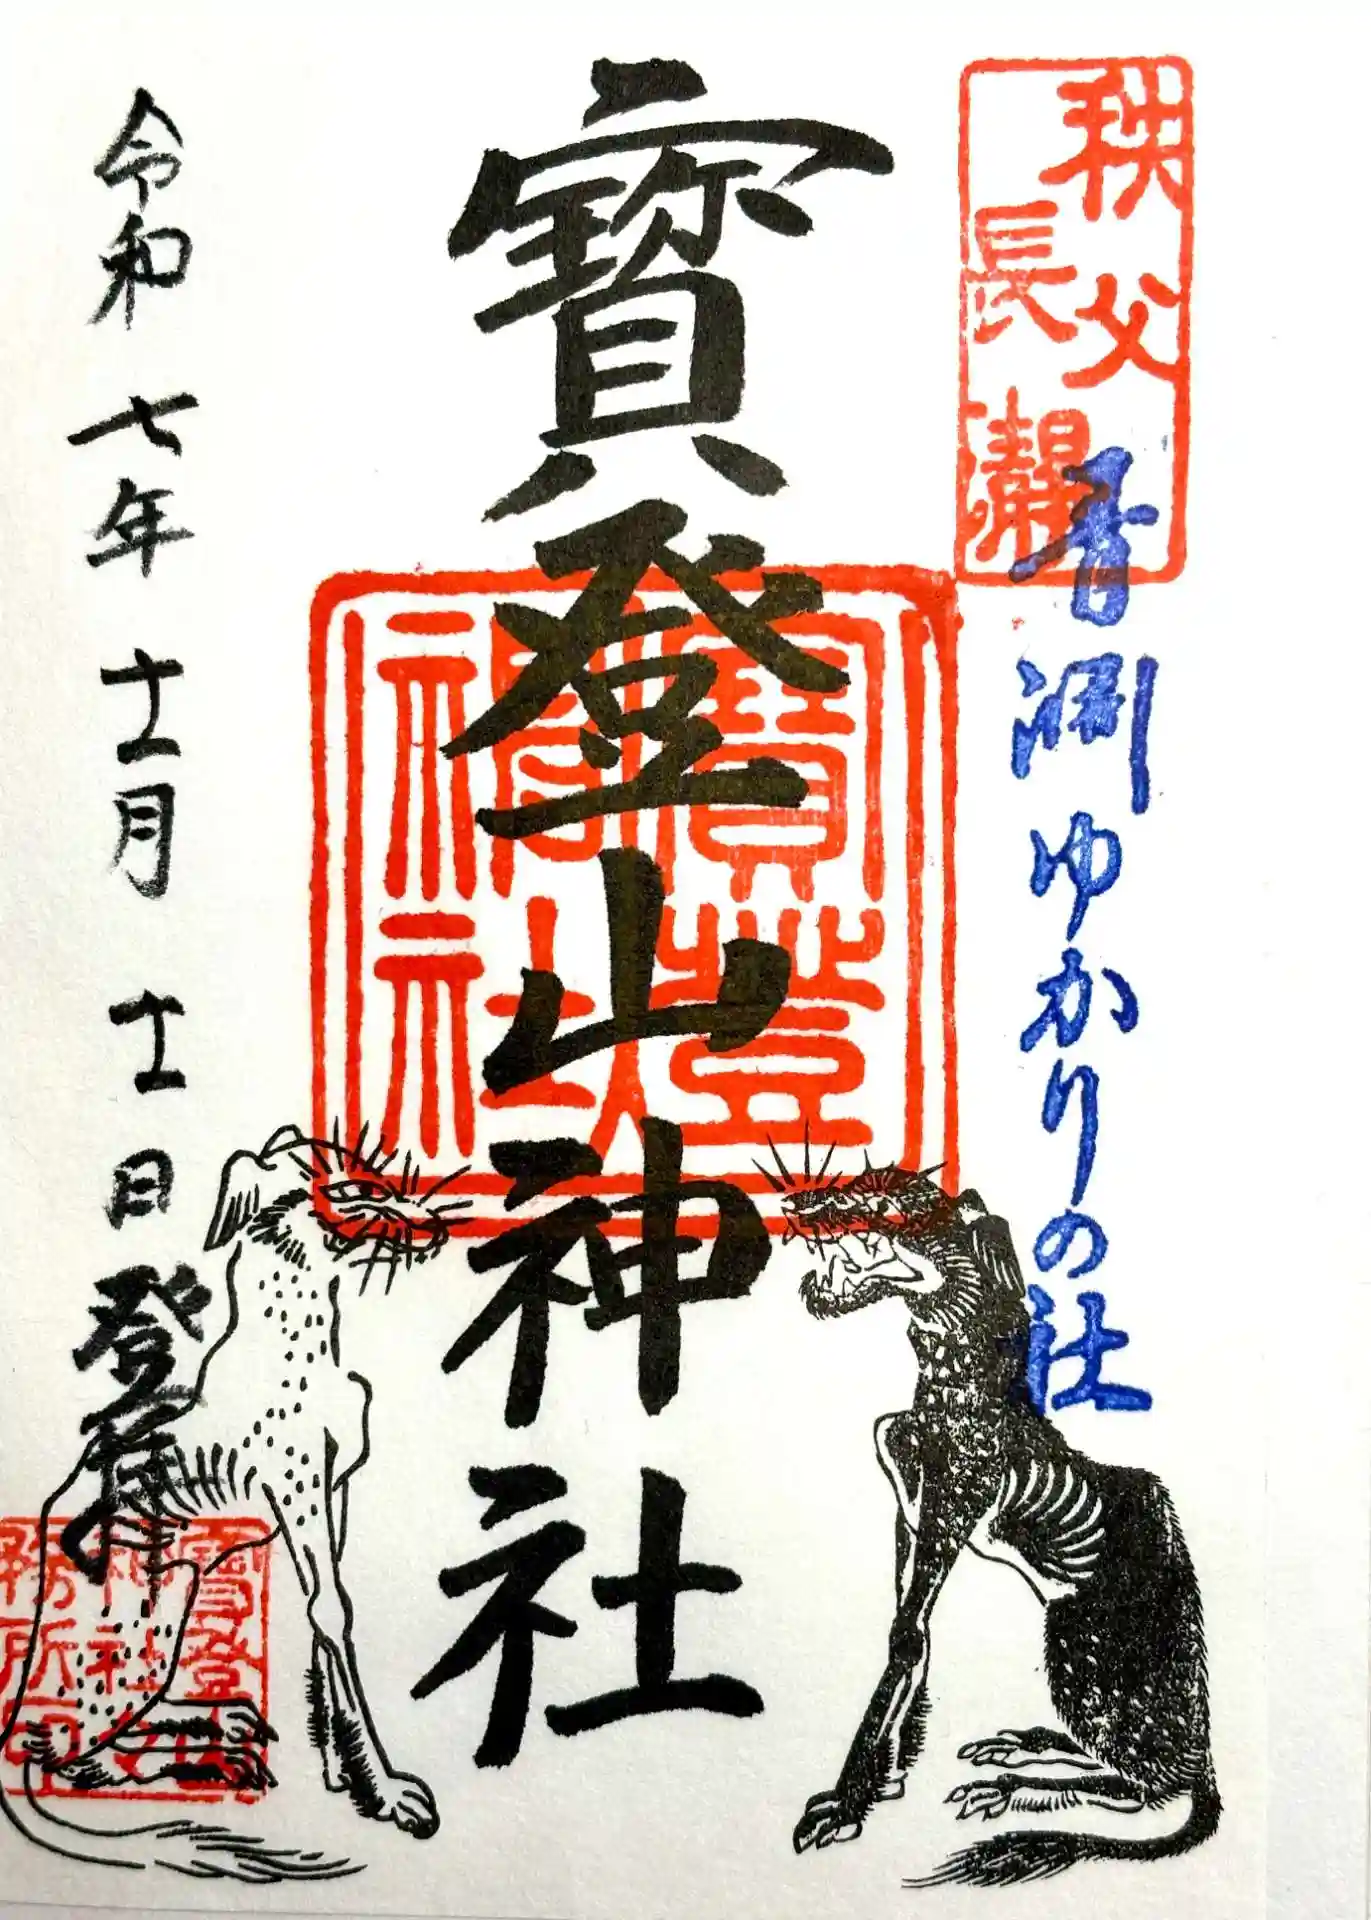 秩父
長瀞
青淵ゆかりの社
寳登山神社
寶登
神社
令和七年十二月十一日
登拝
寳登山
神社社
務所印